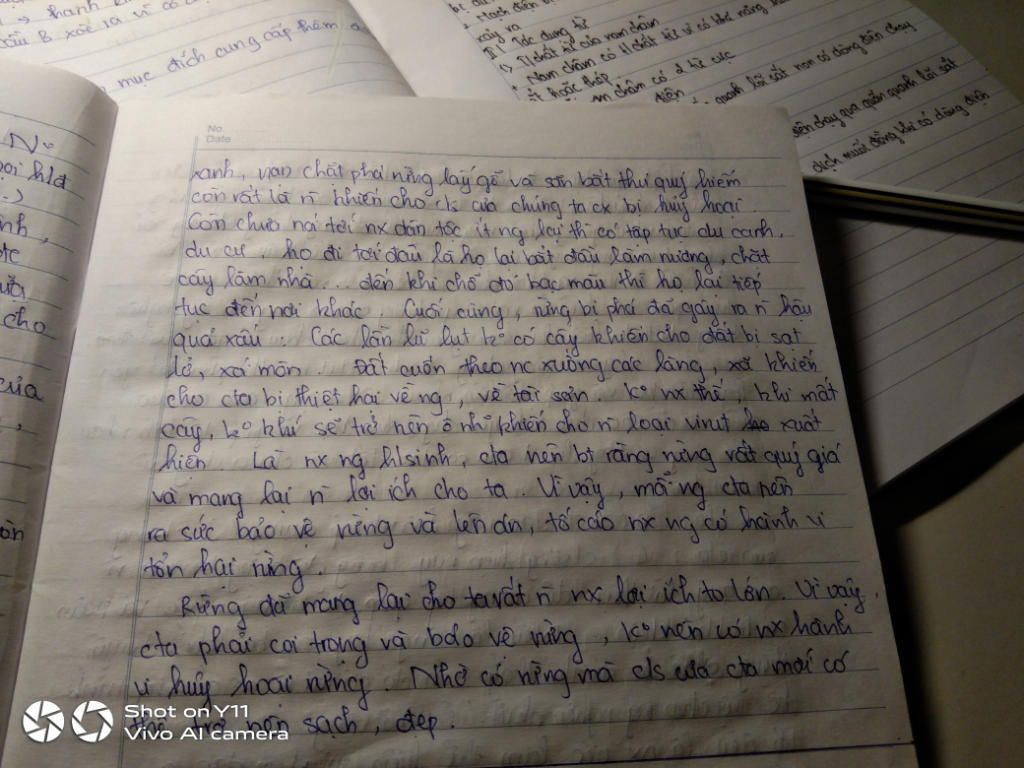 → hanh
mục đích cung cấp thêm
xảy ra
1) Tác dụng từ
Nam châm có
No.
Date
xanh, nạn chặt phá rừng lấy gỗ và săn bắt thú quý hiếm
còn rất là n̄ khiến cho cls của chúng ta ck bị huỷ hoại.
Còn chưa nói tới nx dân tộc ít ng lại thì có tập tục du canh,
du cư. họ đi tới đâu là họ lại bắt đầu làm nương, chặt
cây làm nhà... đến khi chỗ đó bạc màu thì họ lại tiếp
tục đến nơi khác. Cuối cùng, rừng bị phá đã gây ra n̄ hậu
quả xấu. Các lần lũ lụt k° có cây khiến cho đất bị sạt
lở, xói mòn. Đất cuốn theo nc xuống các làng, xã khiến
cho cta bị thiệt hại về ng, về tài sản. K° nx thế, khi mất
cây, k° khí sẽ trở nên ô nh° khiến cho n̄ loại virut xuất
hiện. Là nx ng hlsinh, cta nên bt rằng rừng rất quý giá
và mang lại n̄ lợi ích cho ta. Vì vậy, mỗi ng cta nên
ra sức bảo vệ rừng và lên án, tố cáo nx ng có hành vi
tổn hại rừng.
Rừng đã mang lại cho ta rất n̄ nx lợi ích to lớn. Vì vậy,
cta phải coi trọng và bảo vệ rừng, k° nên có nx hành
vi huỷ hoại rừng. Nhờ có rừng mà cls của cta mới có
thể trở nên sạch, đẹp.
của
cho
quanh lõi sắt non có dòng điện chạy
điện chạy qua quấn quanh lõi sắt
dịch mười đồng khi có dòng điện
Shot on Y11
Vivo AI camera